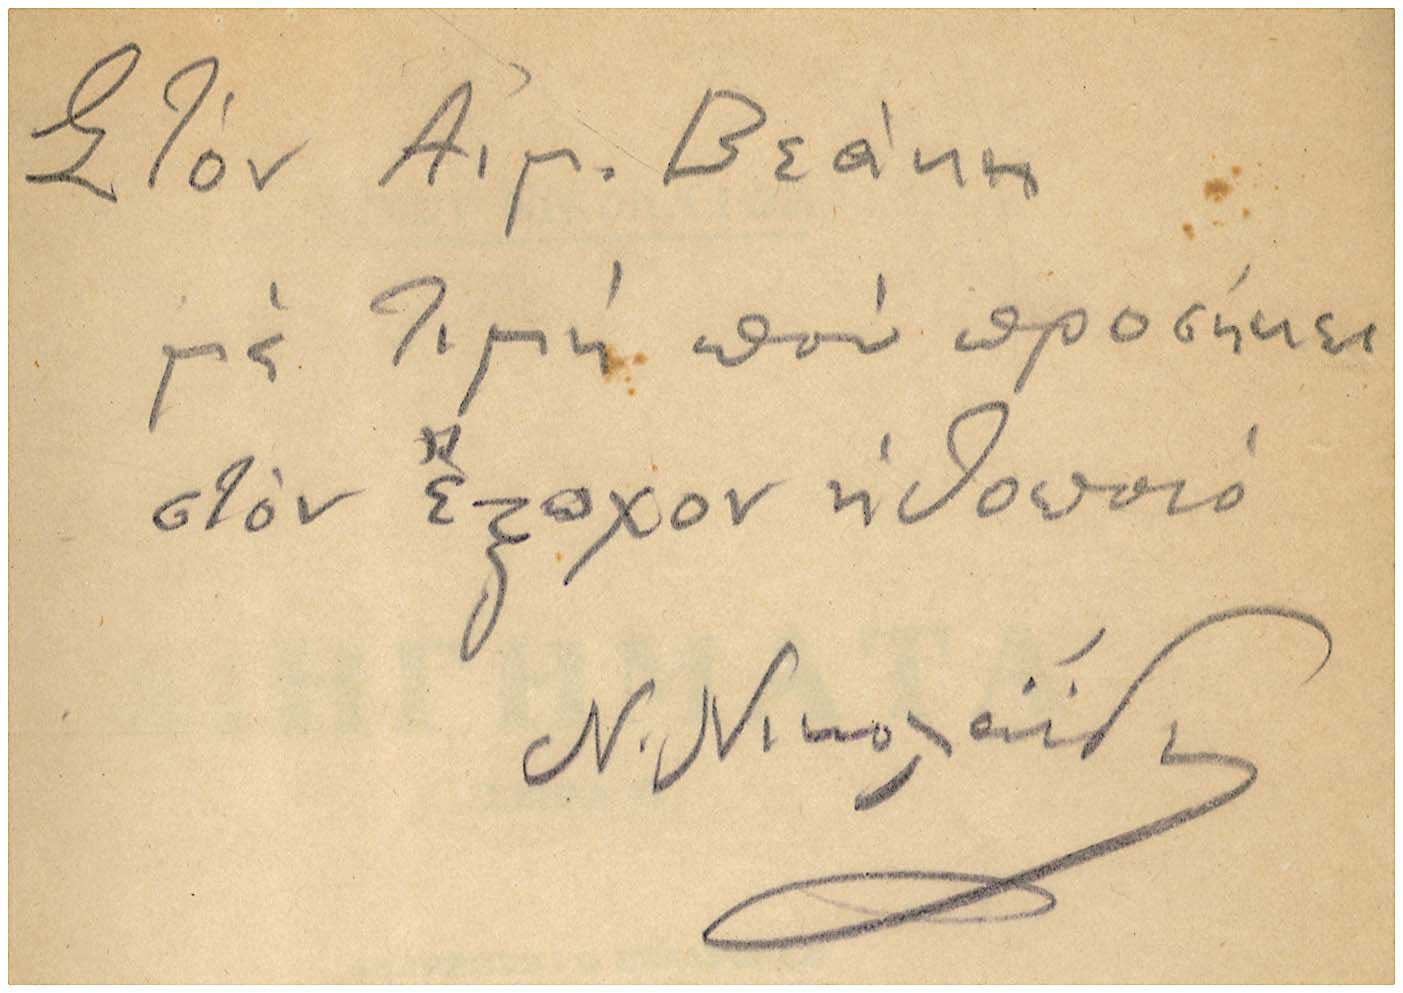 Στόν Αἰμ. Βεάκη
μέ τιμή πού προσήκει
στόν ἔξοχον ἠθοποιό
Ν. Νικολαΐδης